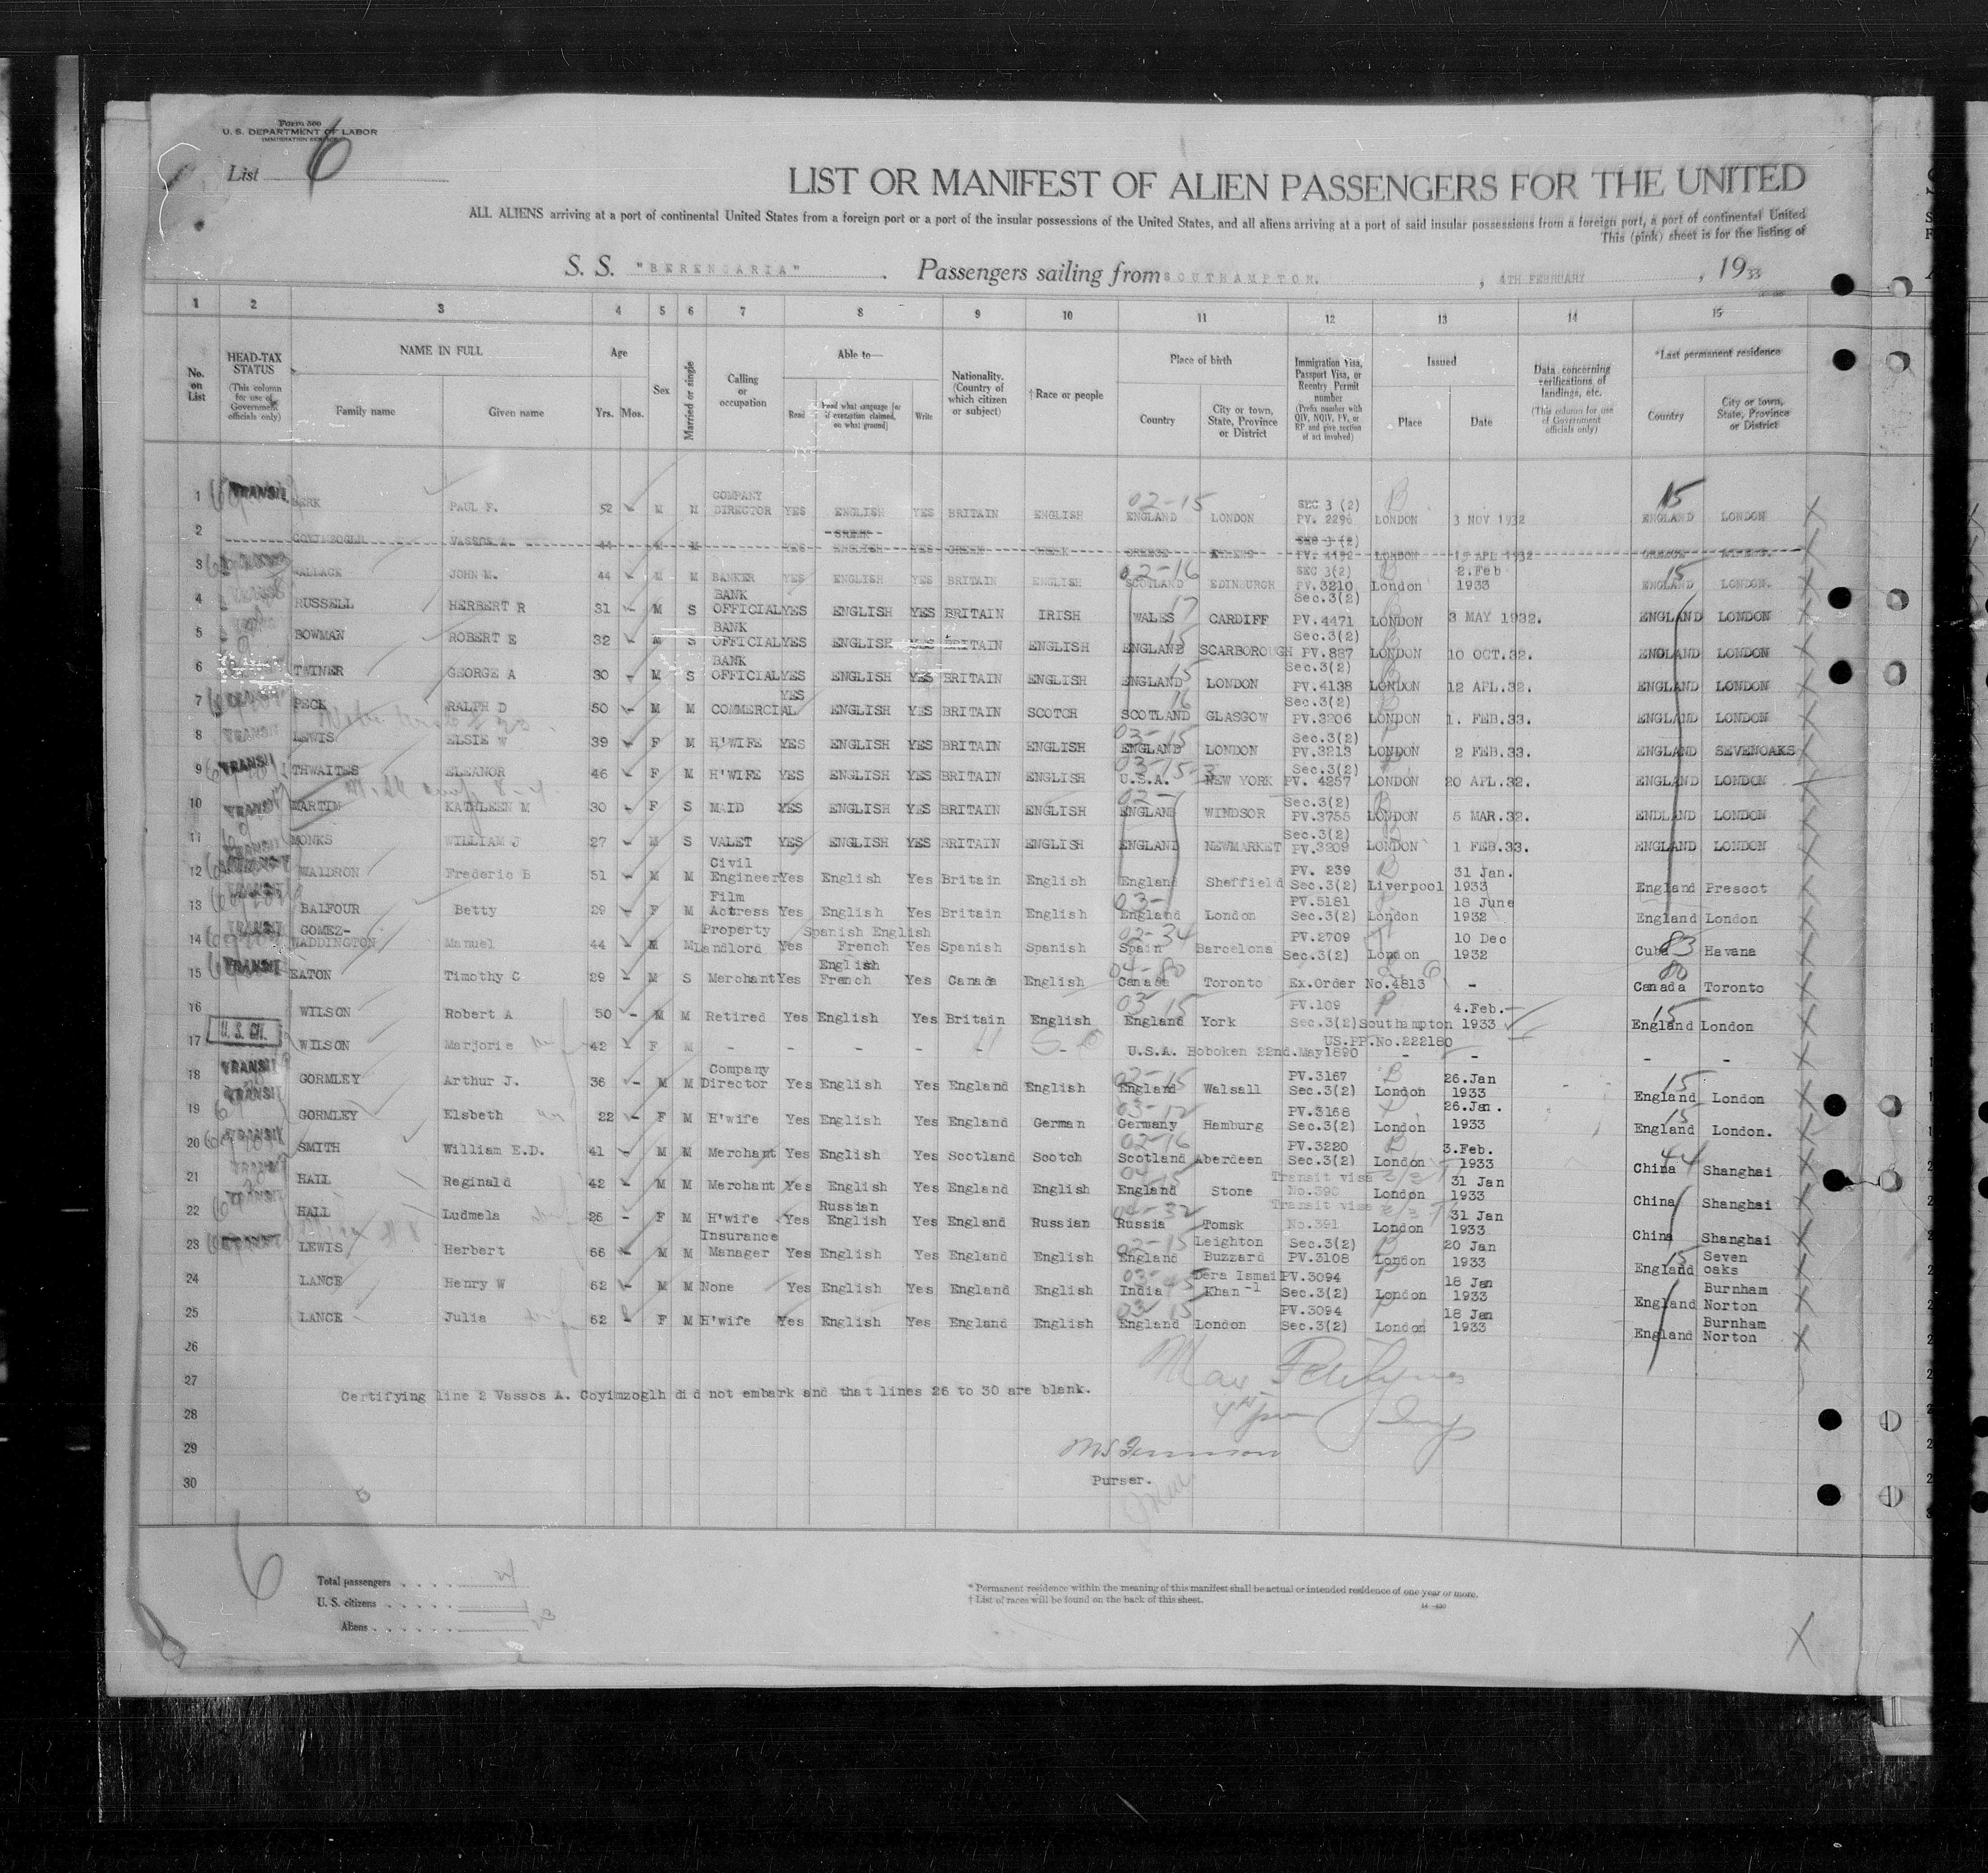 Form 500
U. S. DEPARTMENT OF LABOR
IMMIGRATION SERVICE
List 6
LIST OR MANIFEST OF ALIEN PASSENGERS FOR THE UNITED
ALL ALIENS arriving at a port of continental United States from a foreign port or a port of the insular possessions of the United States, and all aliens arriving at a port of said insular possessions from a foreign port, a port of continental United
This (pink) sheet is for the listing of
S. S. "BERENGARIA" . Passengers sailing from SOUTHAMPTON. , 4TH FEBRUARY , 1933
1 2 3 4 5 6 7 8 9 10 11 12 13 14 15
No. on List
HEAD-TAX STATUS (This column for use of Government officials only)
NAME IN FULL
Family name Given name
Age
Yrs. Mos.
Sex
Married or single
Calling or occupation
Able to—
Read Read what language [or if exemption claimed, on what ground] Write
Nationality. (Country of which citizen or subject)
†Race or people
Place of birth
Country City or town, State, Province or District
Immigration Visa, Passport Visa, or Reentry Permit number (Prefix number with QIV, NQIV, PV, or RP and give section of act involved)
Issued
Place Date
Data concerning verifications of landings, etc. (This column for use of Government officials only)
*Last permanent residence
Country City or town, State, Province or District
1 TRANSIT PAUL F. 52 M M COMPANY DIRECTOR YES ENGLISH YES BRITAIN ENGLISH 02-15 ENGLAND LONDON SEC 3 (2) PV. 2296 LONDON 3 NOV 1932 15 ENGLAND LONDON
2 COYIMZOGLH VASSOS A. 44 M M YES GREEK ENGLISH YES GREEK GREEK GREECE SEC 3 (2) PV. 4192 LONDON 15 APL 1932 GREECE
3 WALLACE JOHN M. 44 M M BANKER YES ENGLISH YES BRITAIN ENGLISH 02-16 SCOTLAND EDINBURGH SEC 3(2) PV.3210 London 2.Feb 1933 15 ENGLAND LONDON.
4 RUSSELL HERBERT R 31 M S BANK OFFICIAL YES ENGLISH YES BRITAIN IRISH 17 WALES CARDIFF Sec.3(2) PV.4471 LONDON 3 MAY 1932. ENGLAND LONDON
5 BOWMAN ROBERT E 32 M S BANK OFFICIAL YES ENGLISH YES BRITAIN ENGLISH 15 ENGLAND SCARBOROUGH Sec.3(2) PV.887 LONDON 10 OCT.32. ENGLAND LONDON
6 TWINER GEORGE A 30 M S BANK OFFICIAL YES ENGLISH YES BRITAIN ENGLISH 15 ENGLAND LONDON Sec.3(2) PV.4138 LONDON 12 APL.32. ENGLAND LONDON
7 PECK RALPH D 50 M M COMMERCIAL YES ENGLISH YES BRITAIN SCOTCH 16 SCOTLAND GLASGOW Sec.3(2) PV.3206 LONDON 1. FEB.33. ENGLAND LONDON
8 TRANSIT LEWIS ELSIE W 39 F M H'WIFE YES ENGLISH YES BRITAIN ENGLISH 03-15 ENGLAND LONDON Sec.3(2) PV.3213 LONDON 2 FEB.33. ENGLAND SEVENOAKS
9 TRANSIT THWAITES ELEANOR 46 F M H'WIFE YES ENGLISH YES BRITAIN ENGLISH 03-15-3 U.S.A. NEW YORK Sec.3(2) PV. 4257 LONDON 20 APL.32. ENGLAND LONDON
10 TRANSIT MARTIN KATHLEEN M 30 F S MAID YES ENGLISH YES BRITAIN ENGLISH 02- ENGLAND WINDSOR Sec.3(2) PV.3755 LONDON 5 MAR.32. ENDLAND LONDON
11 TRANSIT MONKS WILLIAM J 27 M S VALET YES ENGLISH YES BRITAIN ENGLISH ENGLAND NEWMARKET Sec.3(2) PV.3209 LONDON 1 FEB.33. ENGLAND LONDON
12 WALDRON Frederic B 51 M M Civil Engineer Yes English Yes Britain English England Sheffield PV. 239 Sec.3(2) Liverpool 31 Jan. 1933 England Prescot
13 TRANSIT BALFOUR Betty 29 F M Film Actress Yes English Yes Britain English 03- England London PV.5181 Sec.3(2) London 18 June 1932 England London
14 TRANSIT GOMEZ-WADDINGTON Manuel 44 M M Property Landlord Yes Spanish English French Yes Spanish Spanish 02-34 Spain Barcelona PV.2709 Sec.3(2) London 10 Dec 1932 83 Cuba Havana
15 TRANSIT EATON Timothy C 29 M S Merchant Yes English French Yes Canada English 04-80 Canada Toronto Ex.Order No.4813 - 80 Canada Toronto
16 WILSON Robert A 50 M M Retired Yes English Yes Britain English 03-15 England York PV.109 Sec.3(2) Southampton 4.Feb. 1933 15 England London
17 U.S. CIT. WILSON Marjorie 42 F M - - - - - - U.S.A. Hoboken 22nd.May1890 US.PP.No.222180 - - - -
18 TRANSIT GORMLEY Arthur J. 36 M M Company Director Yes English Yes England English 02-15 England Walsall PV.3167 Sec.3(2) London 26.Jan 1933 15 England London
19 TRANSIT GORMLEY Elsbeth 22 F M H'wife Yes English Yes England German 03-12 Germany Hamburg PV.3168 Sec.3(2) London 26.Jan. 1933 15 England London.
20 TRANSIT SMITH William E.D. 41 M M Merchant Yes English Yes Scotland Scotch 02-16 Scotland Aberdeen PV.3220 Sec.3(2) London 3.Feb. 1933 44 China Shanghai
21 TRANSIT HALL Reginald 42 M M Merchant Yes English Yes England English 04-15 England Stone Transit visa No.390 London 31 Jan 1933 China Shanghai
22 TRANSIT HALL Ludmela 26 F M H'wife Yes Russian English Yes England Russian 04-32 Russia Tomsk Transit visa No.391 London 31 Jan 1933 China Shanghai
23 TRANSIT LEWIS Herbert 66 M M Insurance Manager Yes English Yes England English 02-15 England Leighton Buzzard Sec.3(2) PV.3108 London 20 Jan 1933 15 England Seven oaks
24 LANCE Henry W 62 M M None Yes English Yes England English 03-45 India Dera Ismail Khan PV.3094 Sec.3(2) London 18 Jan 1933 England Burnham Norton
25 LANCE Julia 62 F M H'wife Yes English Yes England English 03 15 England London PV.3094 Sec.3(2) London 18 Jan 1933 England Burnham Norton
26
27
Certifying line 2 Vassos A. Coyimzoglh did not embark and that lines 26 to 30 are blank.
28
29
30
Purser.
6
Total passengers . . . . 24
U. S. citizens . . . . . 1
Aliens . . . . . . 23
* Permanent residence within the meaning of this manifest shall be actual or intended residence of one year or more.
† List of races will be found on the back of this sheet.